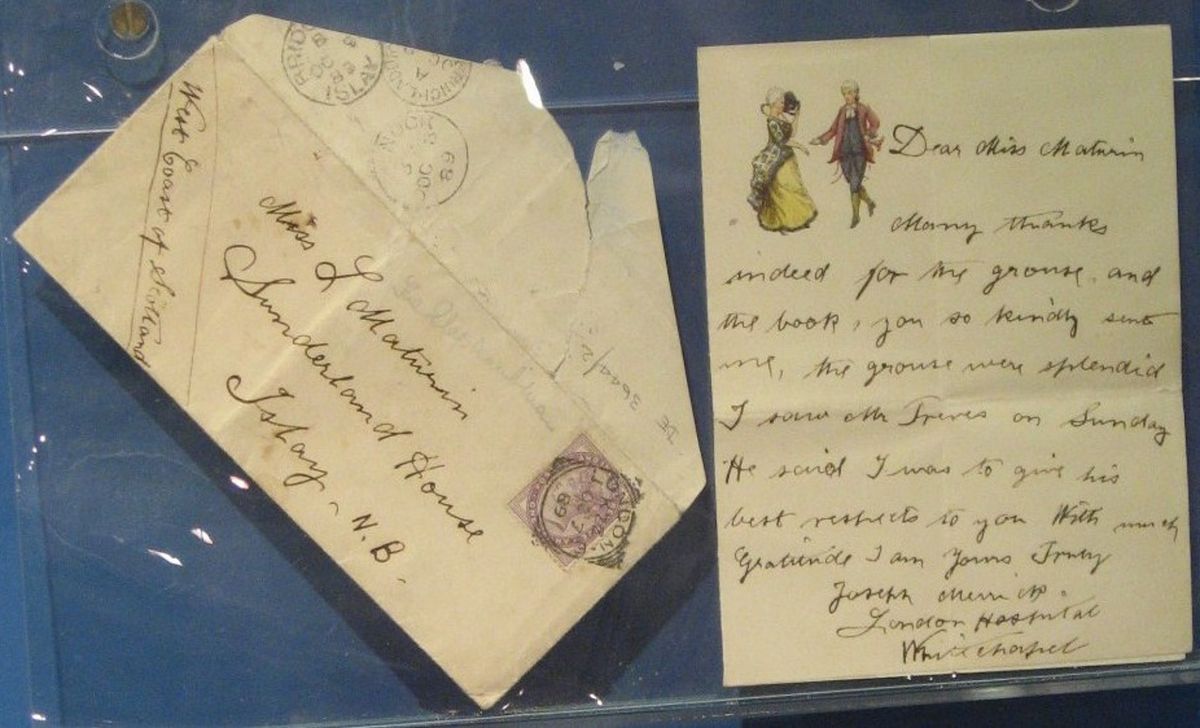 West Coast of Scotland
Miss L Maturin
Sunderland House
Islay, N.B.
NOON
89
LONDON.
89
Dear Miss Maturin
Many thanks
indeed for the grouse, and
the book, you so kindly sent
me, the grouse were splendid
I saw Mr Treves on Sunday
He said I was to give his
best respects to you With much
Gratitude I am Yours Truly
Joseph Merrick.
London Hospital
Whitechapel